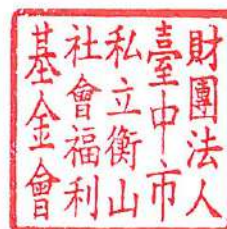 財團法人
臺中市
私立衡山
社會福利
基金會